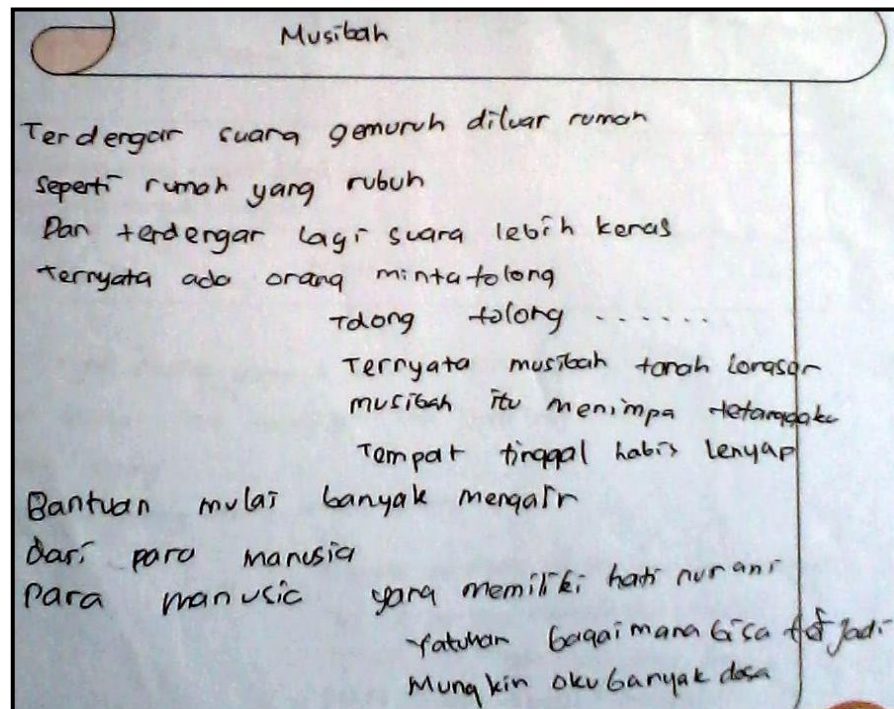 Musibah
Terdengar suara gemuruh diluar rumah
seperti rumah yang rubuh
Dan terdengar lagi suara lebih keras
ternyata ada orang minta tolong
Tolong tolong ......
Ternyata musibah tanah longsor
musibah itu menimpa tetanggaku
Tempat tinggal habis lenyap
Bantuan mulai banyak mengalir
dari para manusia
Para manusia yang memiliki hati nurani
Yatuhan bagaimana bisa terjadi
Mungkin aku banyak dosa